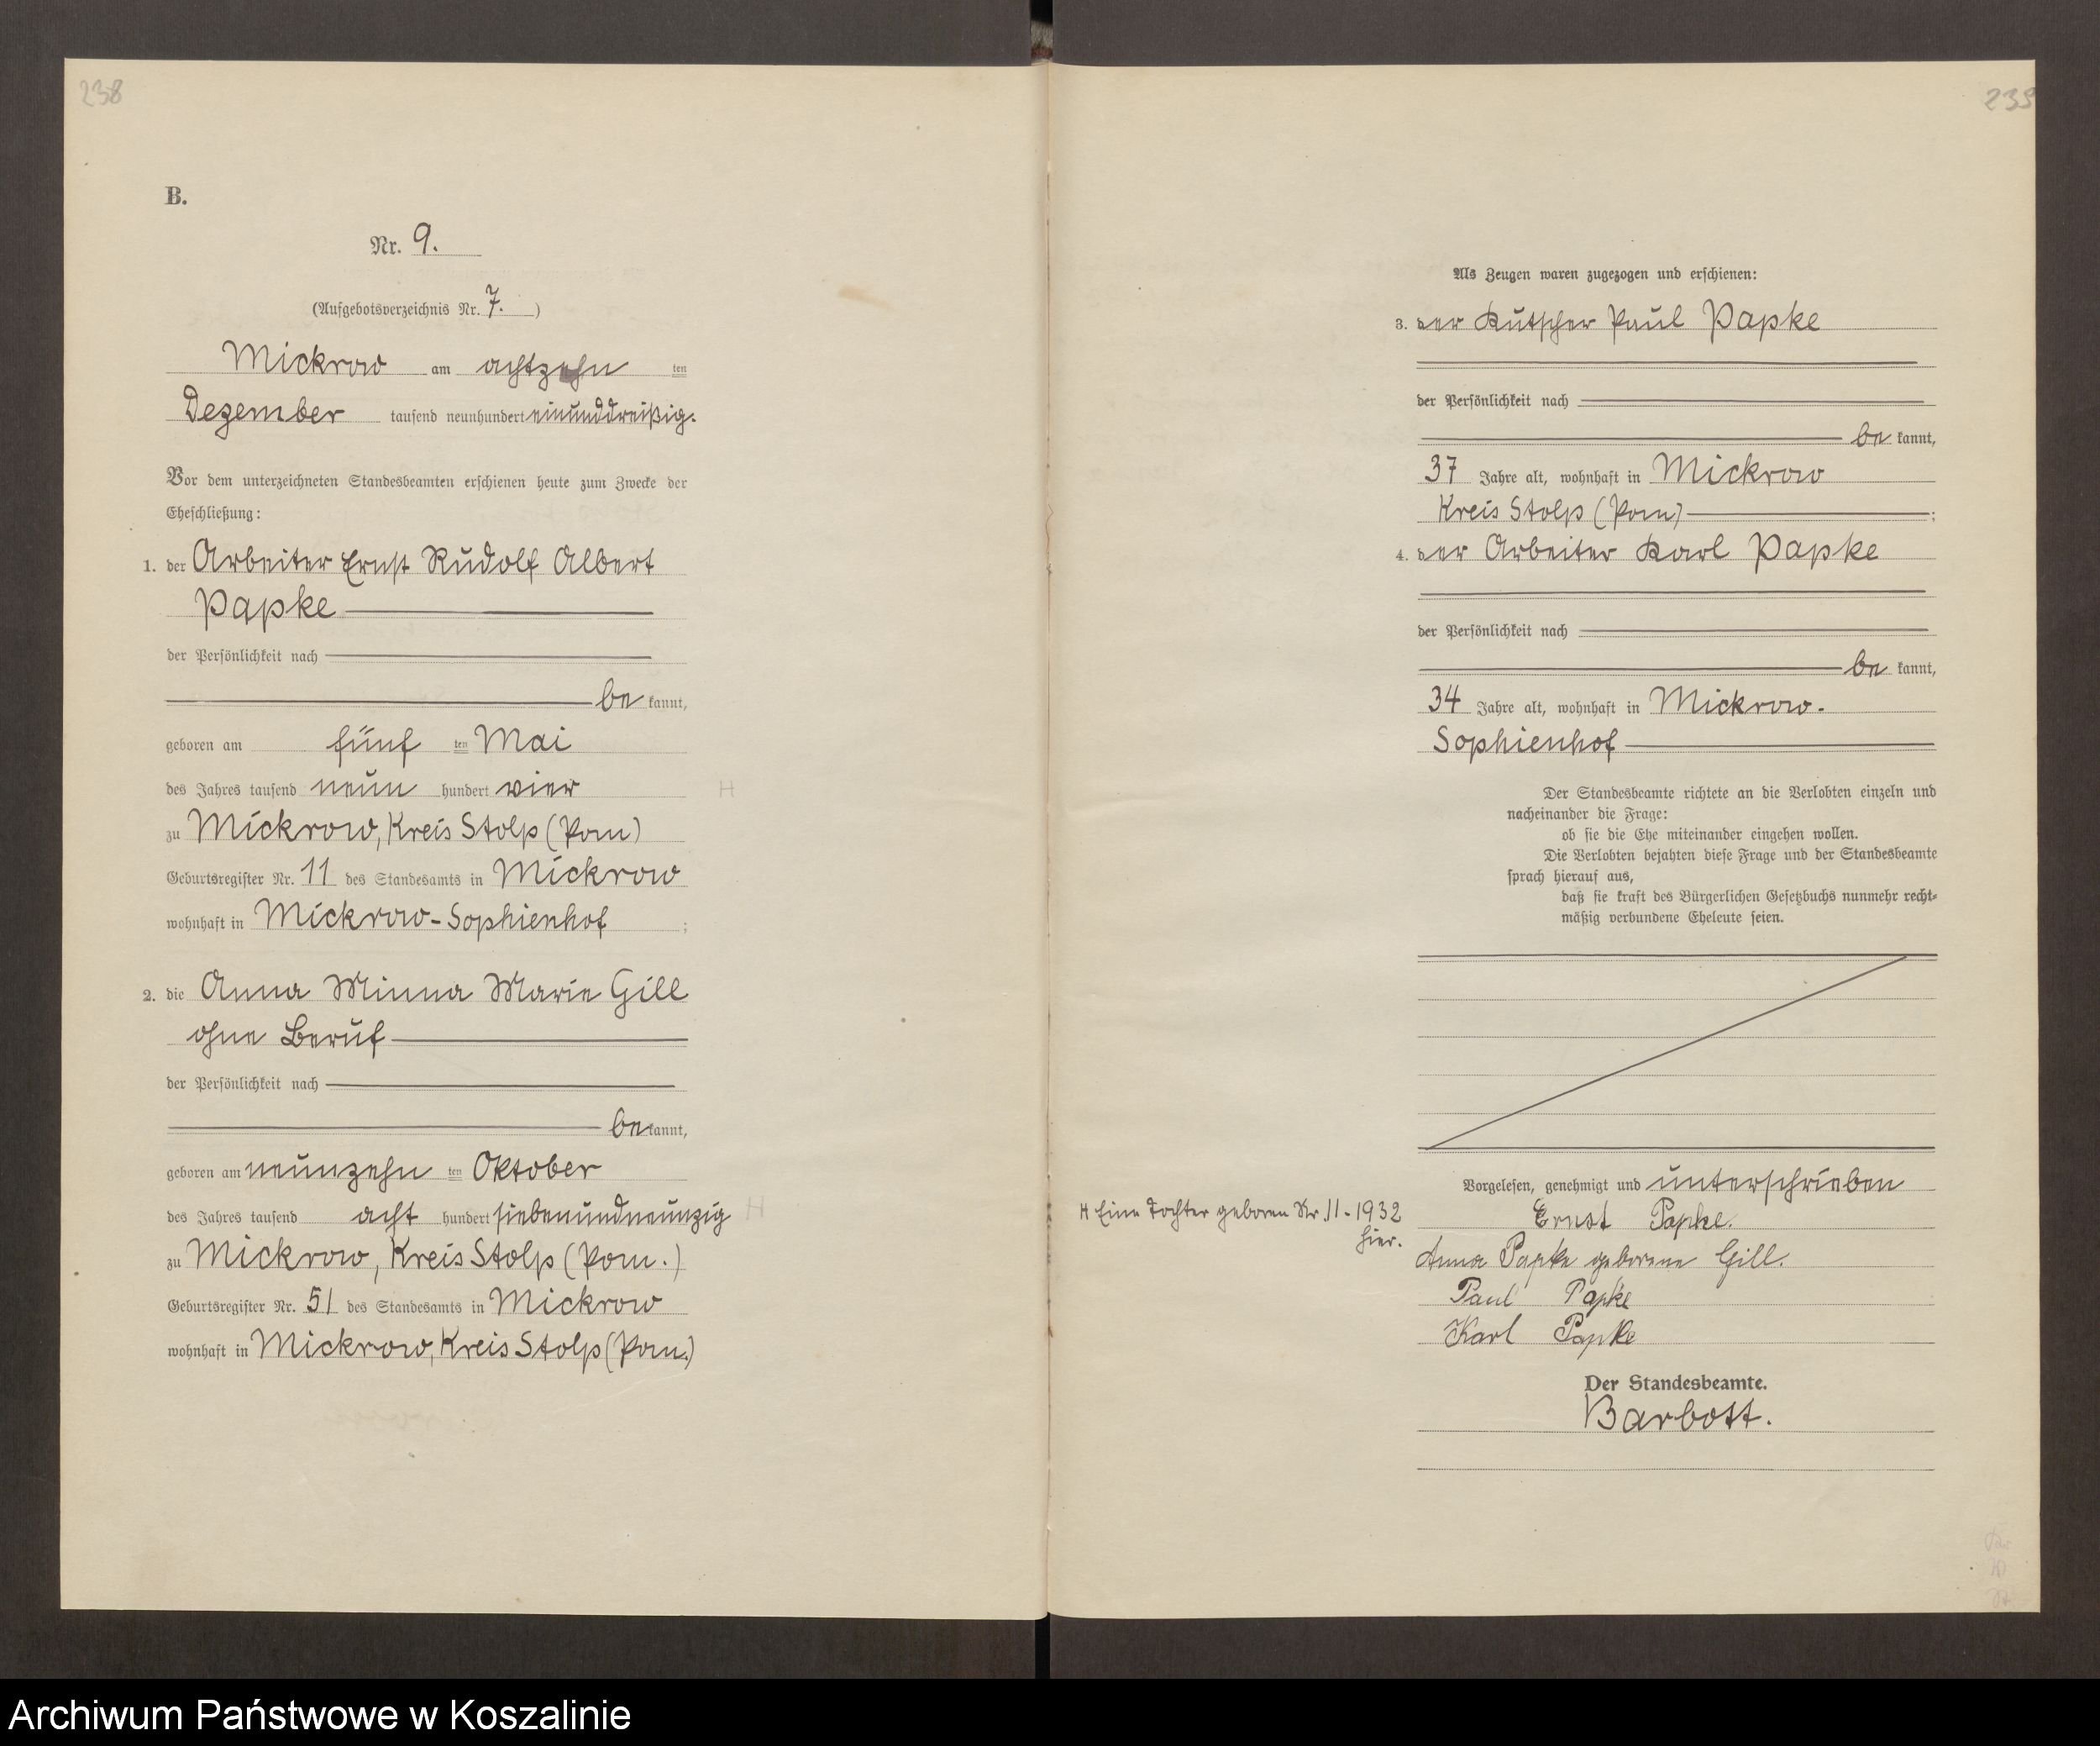 238
B.
Nr. 9.
(Aufgebotsverzeichnis Nr. 7. )
Mickrow am achtzehn ten
Dezember tausend neunhundert einunddreißig.
Vor dem unterzeichneten Standesbeamten erschienen heute zum Zwecke der
Eheschließung:
1. der Arbeiter Ernst Rudolf Albert
Papke
der Persönlichkeit nach
be kannt,
geboren am fünf ten Mai
des Jahres tausend neun hundert vier H
zu Mickrow, Kreis Stolp (Pom)
Geburtsregister Nr. 11 des Standesamts in Mickrow
wohnhaft in Mickrow-Sophienhof ;
2. die Anna Minna Marie Gill
ohne Beruf
der Persönlichkeit nach
be kannt,
geboren am neunzehn ten Oktober
des Jahres tausend acht hundert siebenundneunzig H
zu Mickrow, Kreis Stolp (Pom.)
Geburtsregister Nr. 51 des Standesamts in Mickrow
wohnhaft in Mickrow, Kreis Stolp (Pom.)
239
Als Zeugen waren zugezogen und erschienen:
3. der Kutscher Paul Papke
der Persönlichkeit nach
be kannt,
37 Jahre alt, wohnhaft in Mickrow
Kreis Stolp (Pom) ;
4. der Arbeiter Karl Papke
der Persönlichkeit nach
be kannt,
34 Jahre alt, wohnhaft in Mickrow-
Sophienhof
Der Standesbeamte richtete an die Verlobten einzeln und
nacheinander die Frage:
ob sie die Ehe miteinander eingehen wollen.
Die Verlobten bejahten diese Frage und der Standesbeamte
sprach hierauf aus,
daß sie kraft des Bürgerlichen Gesetzbuchs nunmehr recht-
mäßig verbundene Eheleute seien.
Vorgelesen, genehmigt und unterschrieben
H Eine Tochter geboren Nr. 11-1932
hier.
Ernst Papke.
Anna Papke geborene Gill.
Paul Papke
Karl Papke
Der Standesbeamte.
Barbott.
Archiwum Państwowe w Koszalinie